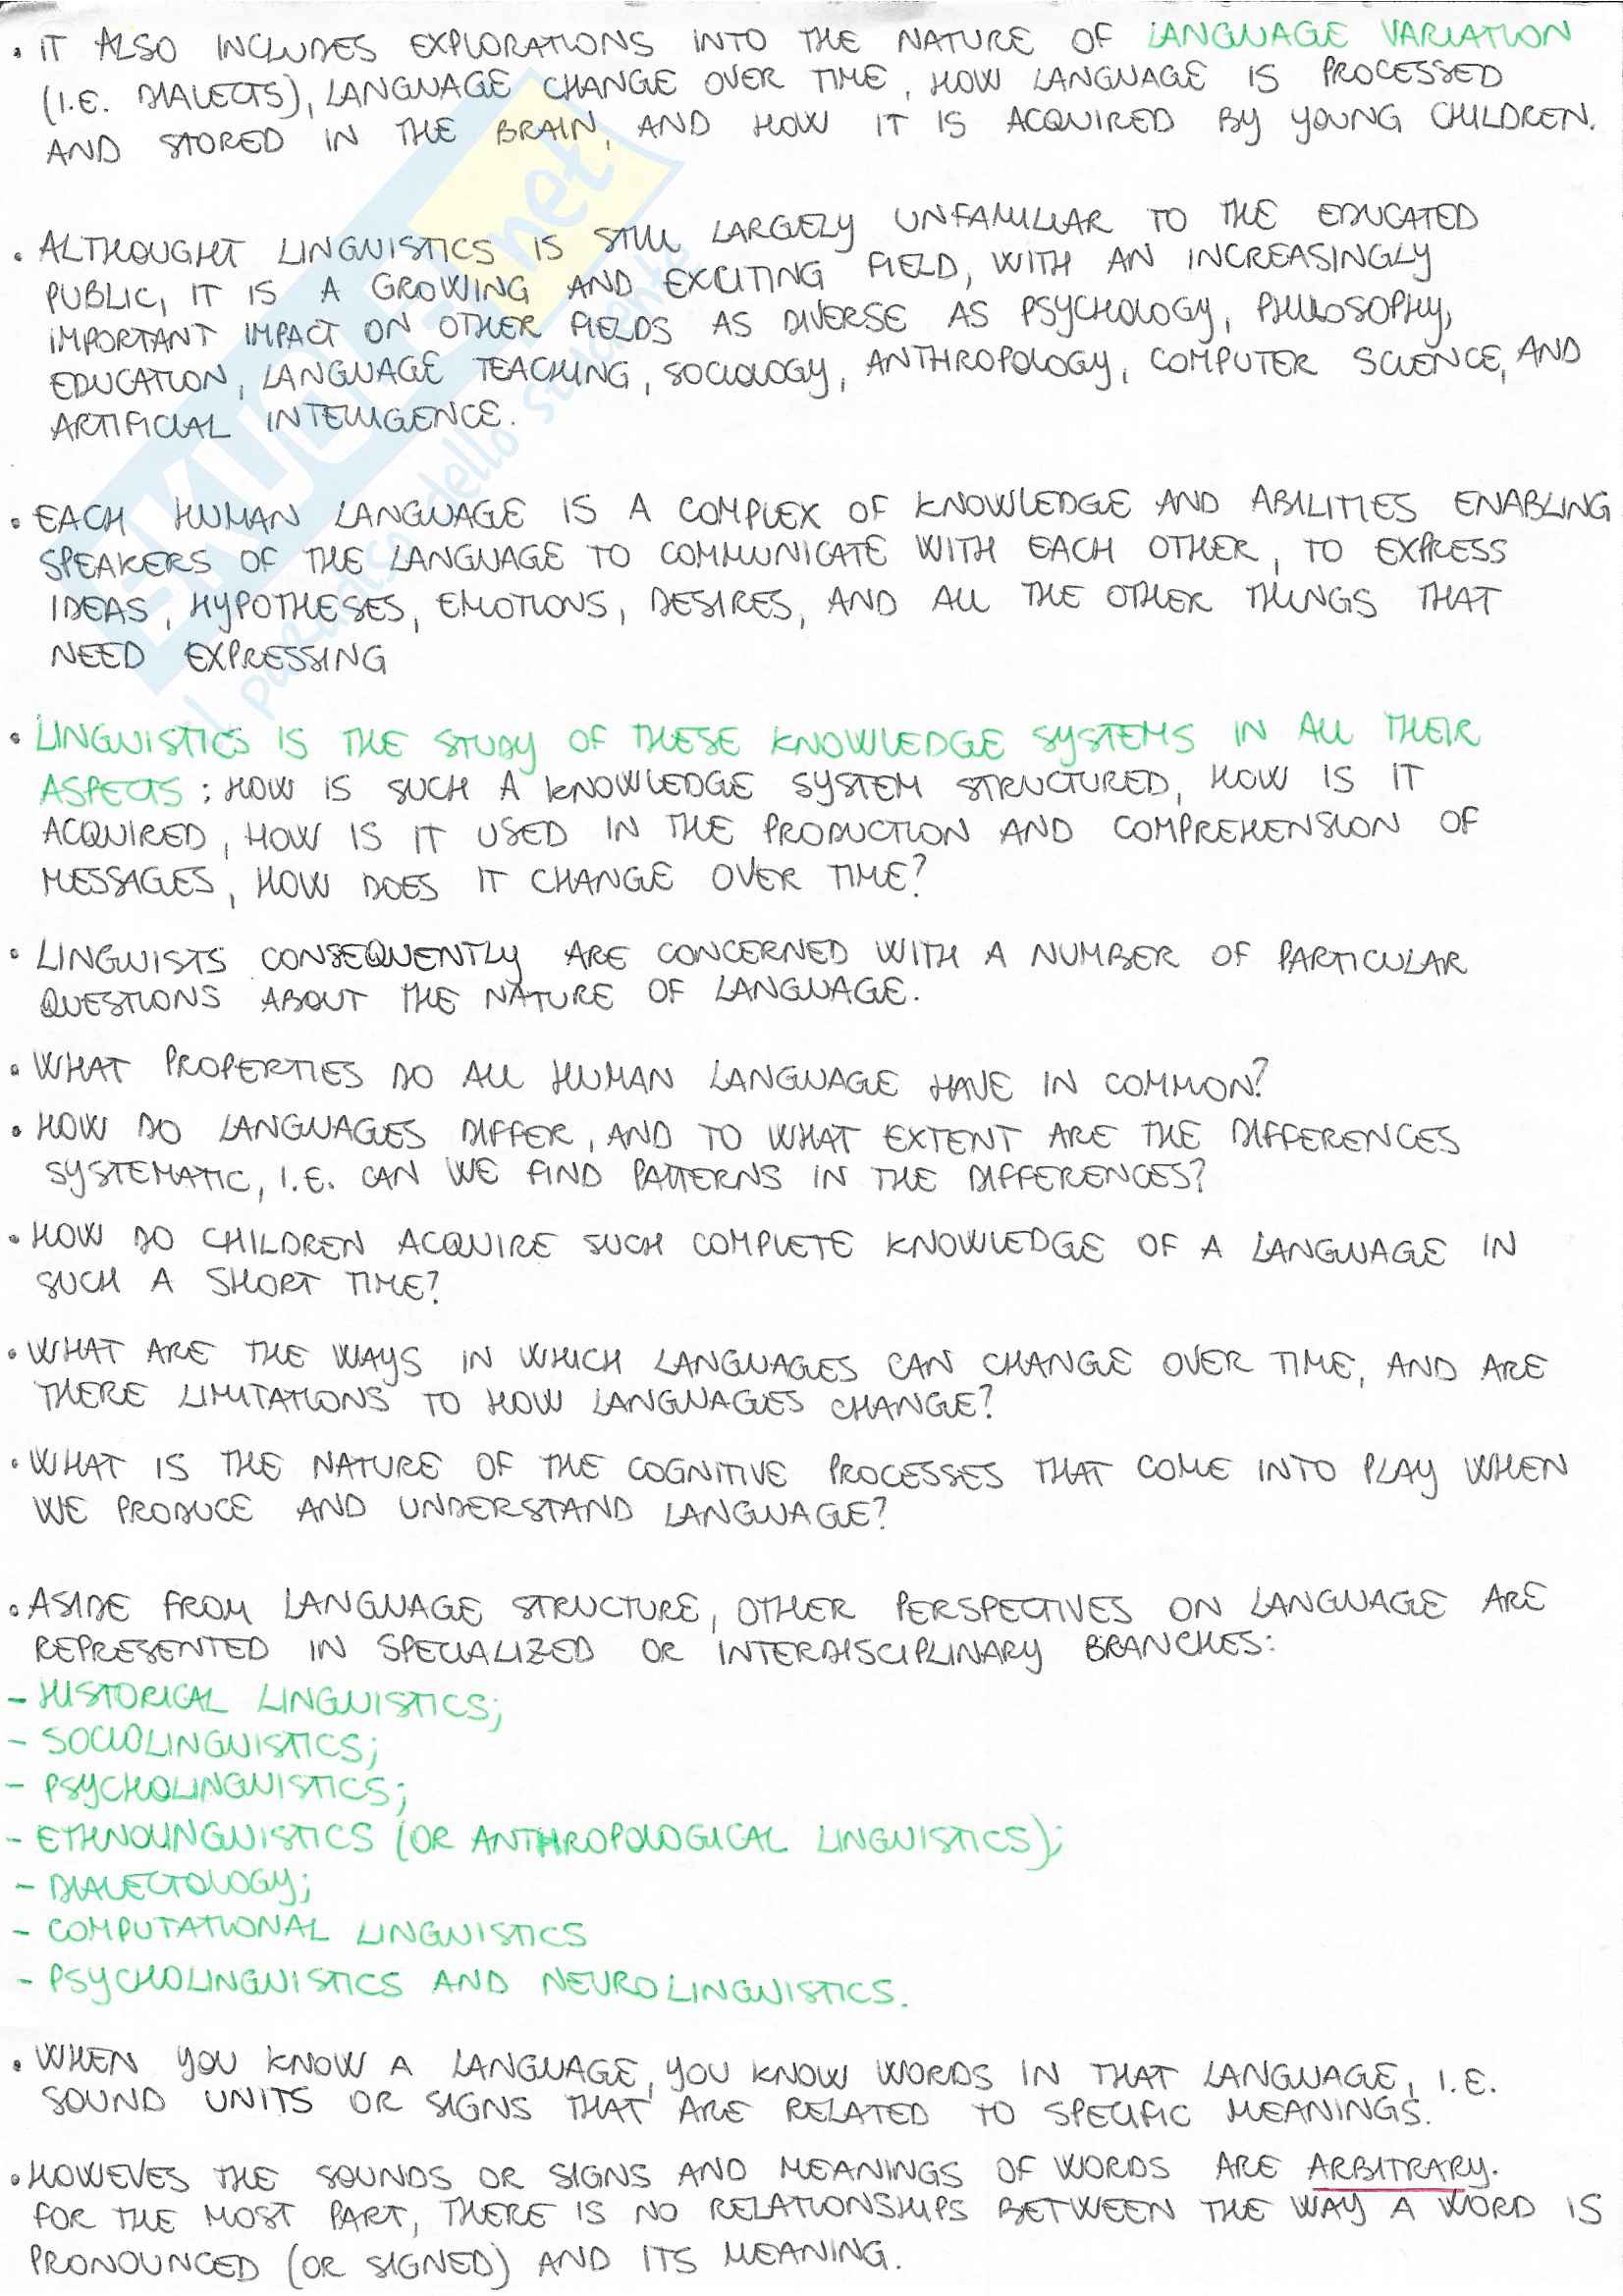 • IT ALSO INCLUDES EXPLORATIONS INTO THE NATURE OF LANGUAGE VARIATION
(I.E. DIALECTS), LANGUAGE CHANGE OVER TIME, HOW LANGUAGE IS PROCESSED
AND STORED IN THE BRAIN, AND HOW IT IS ACQUIRED BY YOUNG CHILDREN.
• ALTHOUGHT LINGUISTICS IS STILL LARGELY UNFAMILIAR TO THE EDUCATED
PUBLIC, IT IS A GROWING AND EXCITING FIELD, WITH AN INCREASINGLY
IMPORTANT IMPACT ON OTHER FIELDS AS DIVERSE AS PSYCHOLOGY, PHILOSOPHY,
EDUCATION, LANGUAGE TEACHING, SOCIOLOGY, ANTHROPOLOGY, COMPUTER SCIENCE, AND
ARTIFICIAL INTELLIGENCE.
• EACH HUMAN LANGUAGE IS A COMPLEX OF KNOWLEDGE AND ABILITIES ENABLING
SPEAKERS OF THE LANGUAGE TO COMMUNICATE WITH EACH OTHER, TO EXPRESS
IDEAS, HYPOTHESES, EMOTIONS, DESIRES, AND ALL THE OTHER THINGS THAT
NEED EXPRESSING
• LINGUISTICS IS THE STUDY OF THESE KNOWLEDGE SYSTEMS IN ALL THEIR
ASPECTS: HOW IS SUCH A KNOWLEDGE SYSTEM STRUCTURED, HOW IS IT
ACQUIRED, HOW IS IT USED IN THE PRODUCTION AND COMPREHENSION OF
MESSAGES, HOW DOES IT CHANGE OVER TIME?
• LINGUISTS CONSEQUENTLY ARE CONCERNED WITH A NUMBER OF PARTICULAR
QUESTIONS ABOUT THE NATURE OF LANGUAGE.
• WHAT PROPERTIES DO ALL HUMAN LANGUAGE HAVE IN COMMON?
• HOW DO LANGUAGES DIFFER, AND TO WHAT EXTENT ARE THE DIFFERENCES
SYSTEMATIC, I.E. CAN WE FIND PATTERNS IN THE DIFFERENCES?
• HOW DO CHILDREN ACQUIRE SUCH COMPLETE KNOWLEDGE OF A LANGUAGE IN
SUCH A SHORT TIME?
• WHAT ARE THE WAYS IN WHICH LANGUAGES CAN CHANGE OVER TIME, AND ARE
THERE LIMITATIONS TO HOW LANGUAGES CHANGE?
• WHAT IS THE NATURE OF THE COGNITIVE PROCESSES THAT COME INTO PLAY WHEN
WE PRODUCE AND UNDERSTAND LANGUAGE?
• ASIDE FROM LANGUAGE STRUCTURE, OTHER PERSPECTIVES ON LANGUAGE ARE
REPRESENTED IN SPECIALIZED OR INTERDISCIPLINARY BRANCHES:
- HISTORICAL LINGUISTICS;
- SOCIOLINGUISTICS;
- PSYCHOLINGUISTICS;
- ETHNOLINGUISTICS (OR ANTHROPOLOGICAL LINGUISTICS);
- DIALECTOLOGY;
- COMPUTATIONAL LINGUISTICS
- PSYCHOLINGUISTICS AND NEUROLINGUISTICS.
• WHEN YOU KNOW A LANGUAGE, YOU KNOW WORDS IN THAT LANGUAGE, I.E.
SOUND UNITS OR SIGNS THAT ARE RELATED TO SPECIFIC MEANINGS.
• HOWEVES THE SOUNDS OR SIGNS AND MEANINGS OF WORDS ARE ARBITRARY.
FOR THE MOST PART, THERE IS NO RELATIONSHIPS BETWEEN THE WAY A WORD IS
PRONOUNCED (OR SIGNED) AND ITS MEANING.
SKUOLA.net
il paradiso dello studente